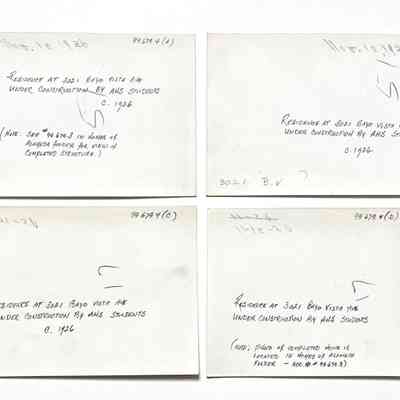 Nov. 12 1926
94679-4 (A)
RESIDENCE AT 3021 BAYO VISTA AVE
UNDER CONSTRUCTION BY AHS STUDENTS
C. 1926
(NOTE: SEE #94679-3 IN HOMES OF
ALAMEDA FOLDER FOR VIEW OF
COMPLETED STRUCTURE.)
Nov. 12 192
RESIDENCE AT 3021 BAYO VISTA
UNDER CONSTRUCTION BY AHS STUD
C. 1926
3021 B.V
94679-4 (C)
RESIDENCE AT 3021 BAYO VISTA AVE
UNDER CONSTRUCTION BY AHS STUDENTS
C. 1926
94679-4 (D)
RESIDENCE AT 3021 BAYO VISTA AVE
UNDER CONSTRUCTION BY AHS STUDENTS
(NOTE: PHOTO OF COMPLETED HOME IS
LOCATED IN HOMES OF ALAMEDA
FOLDER - ACC. # 94679-3)